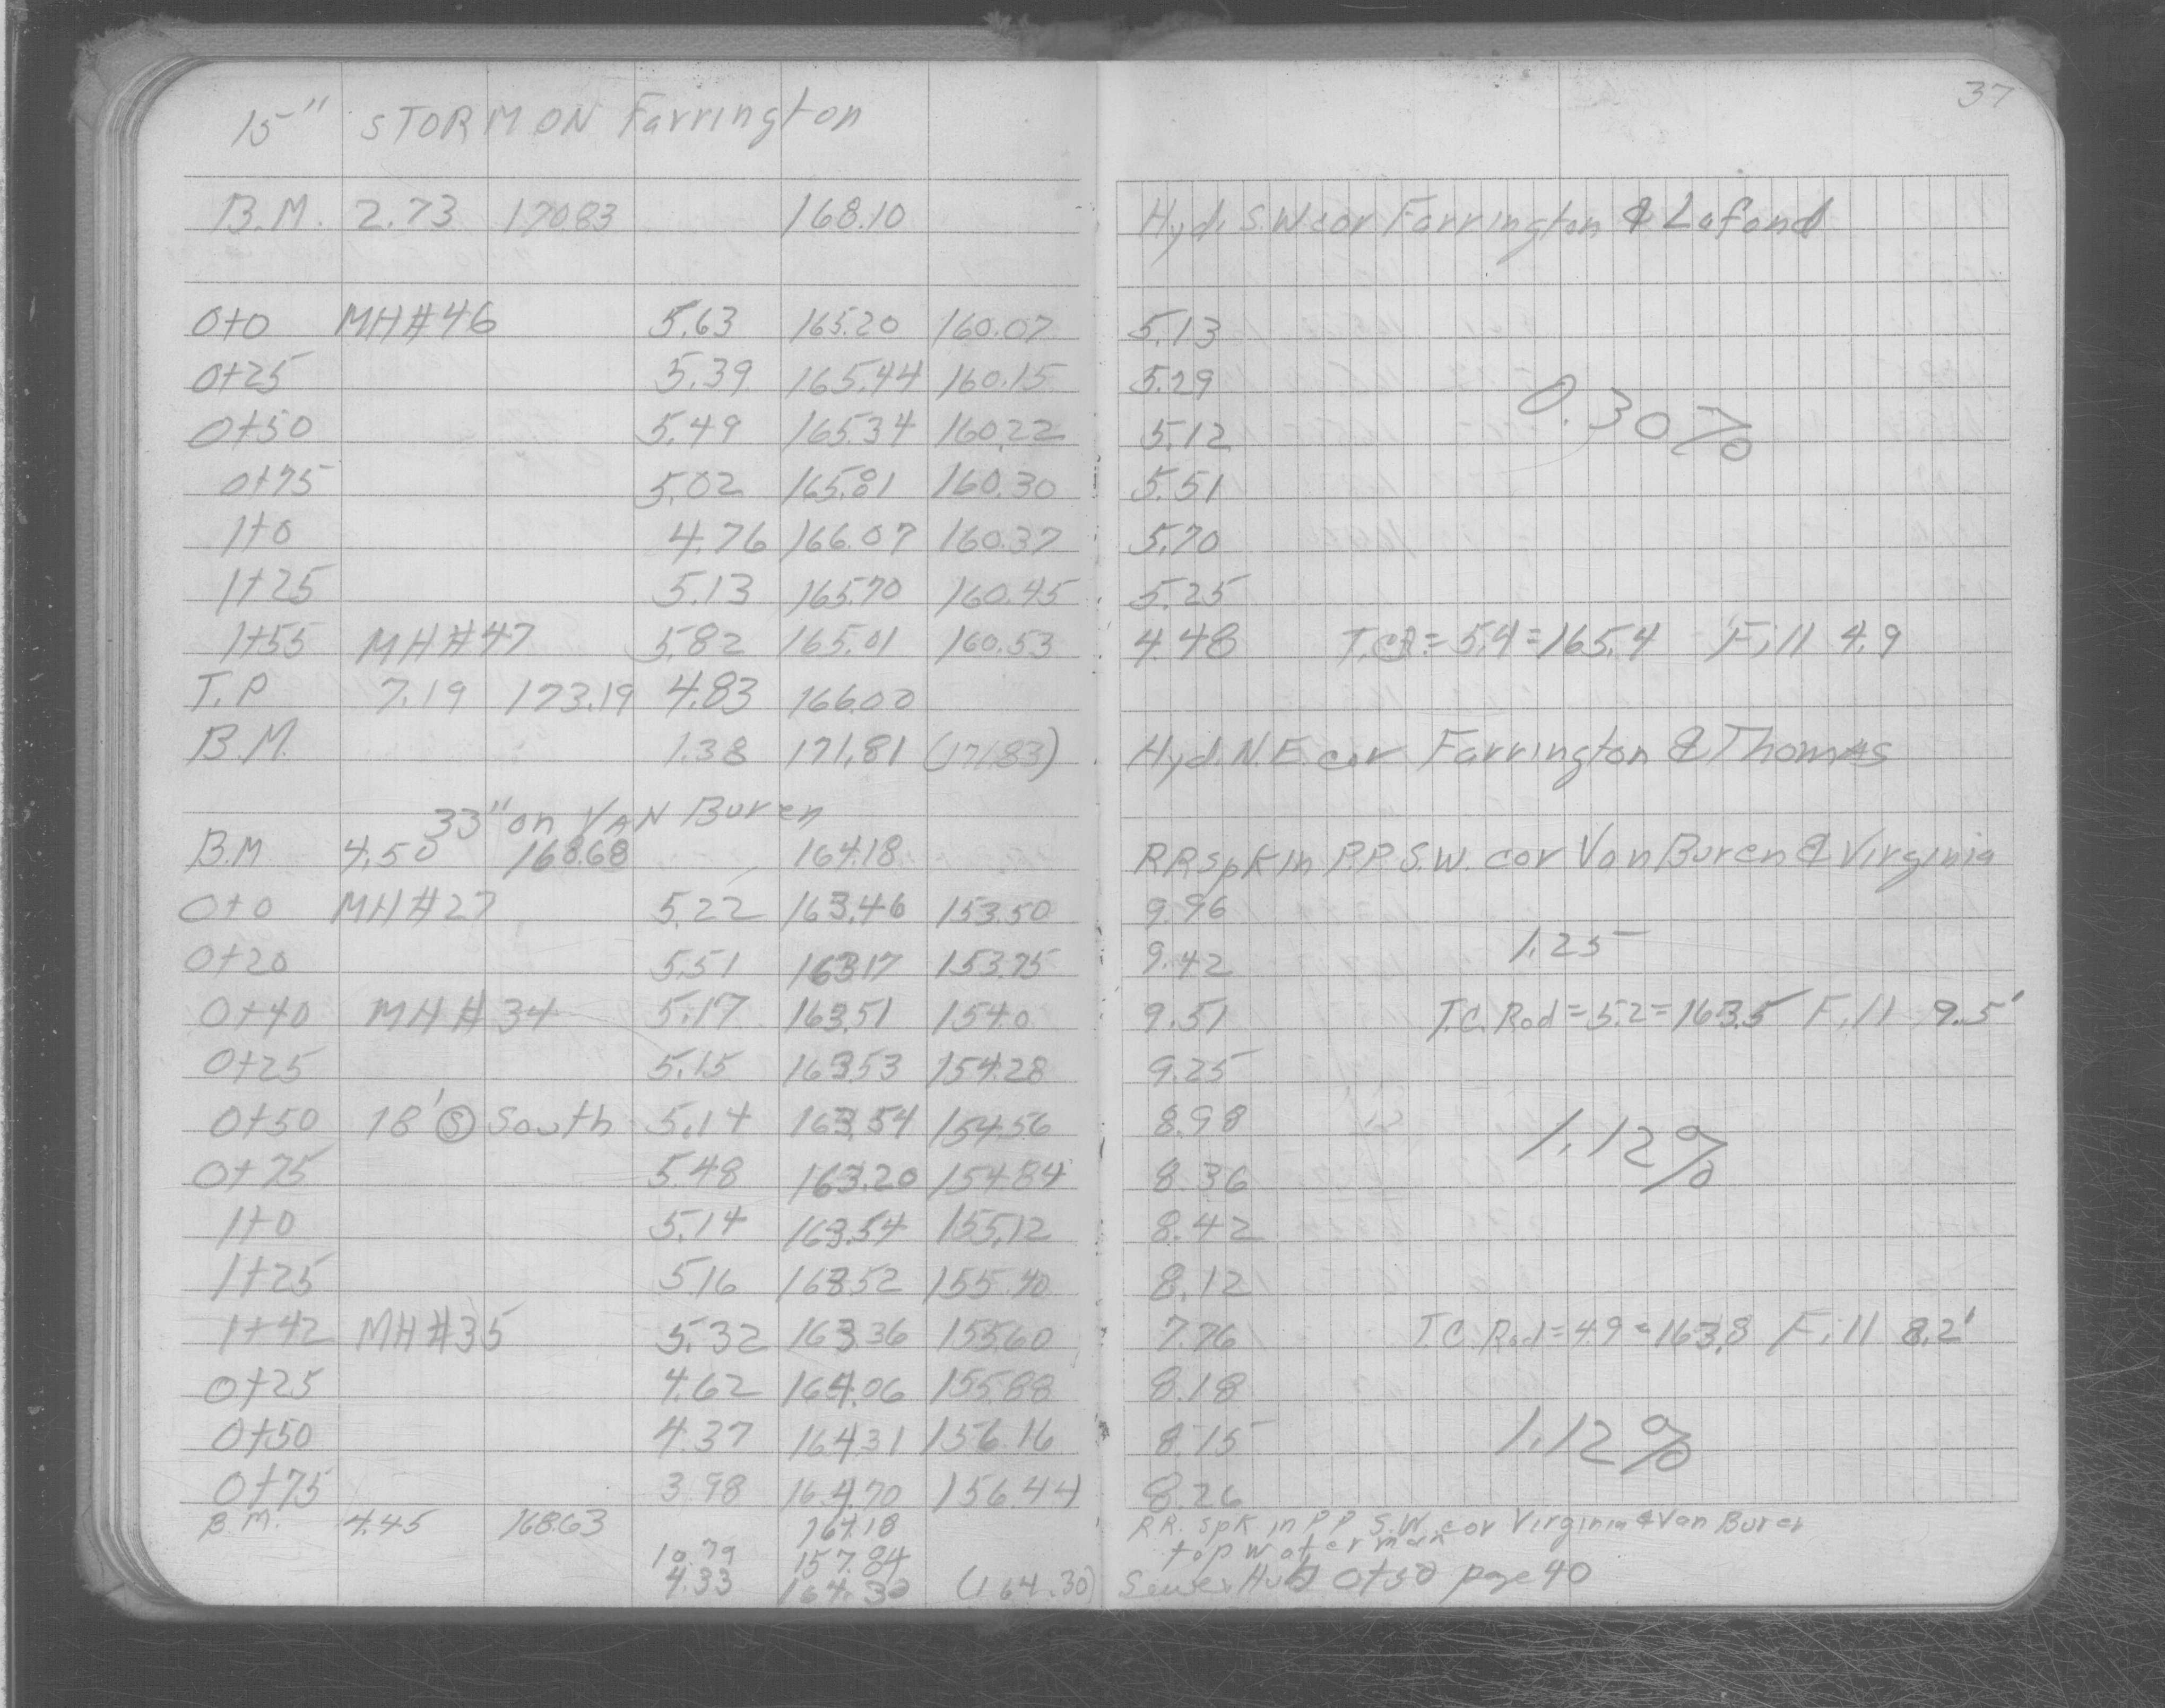 37
15" STORM ON Farrington
B.M. 2.73 170.83 168.10 Hyd. S.W. cor Farrington & Lafond
0+0 MH#46 5.63 165.20 160.07 5.13
0+25 5.39 165.44 160.15 5.29
0.30%
0+50 5.49 165.34 160.22 5.12
0+75 5.02 165.81 160.30 5.51
1+0 4.76 166.07 160.37 5.70
1+25 5.13 165.70 160.45 5.25
1+55 MH#47 5.82 165.01 160.53 4.48 = 5.4 = 165.4 Fill 4.9
T.P 7.19 173.19 4.83 166.00
B.M. 1.38 171.81 (171.83) Hyd. N.E cor Farrington & Thomas
33" on VAN Buren
B.M 4.50 168.68 164.18 RR spk in P.P. S.W. cor Van Buren & Virginia
0+0 MH#27 5.22 163.46 153.50 9.96
1.25
0+20 5.51 163.17 153.75 9.42
0+40 MH#34 5.17 163.51 154.0 9.51 T.C. Rod = 5.2 = 163.5 Fill 9.5'
0+25 5.15 163.53 154.28 9.25
0+50 18' Ⓢ South 5.14 163.54 154.56 8.98
1.12%
0+75 5.48 163.20 154.84 8.36
1+0 5.14 163.54 155.12 8.42
1+25 5.16 163.52 155.40 8.12
1+42 MH#35 5.32 163.36 155.60 7.76 T.C. Rod = 4.9 = 163.8 Fill 8.2'
0+25 4.62 164.06 155.88 8.18
0+50 4.37 164.31 156.16 8.15 1.12%
0+75 3.98 164.70 156.44 8.26
B.M. 4.45 168.63 164.18 RR. spk in P.P S.W. cor Virginia & Van Buren
10.79 157.84 top water main
4.33 164.30 (164.30) Sewer Hub 0+50 page 40